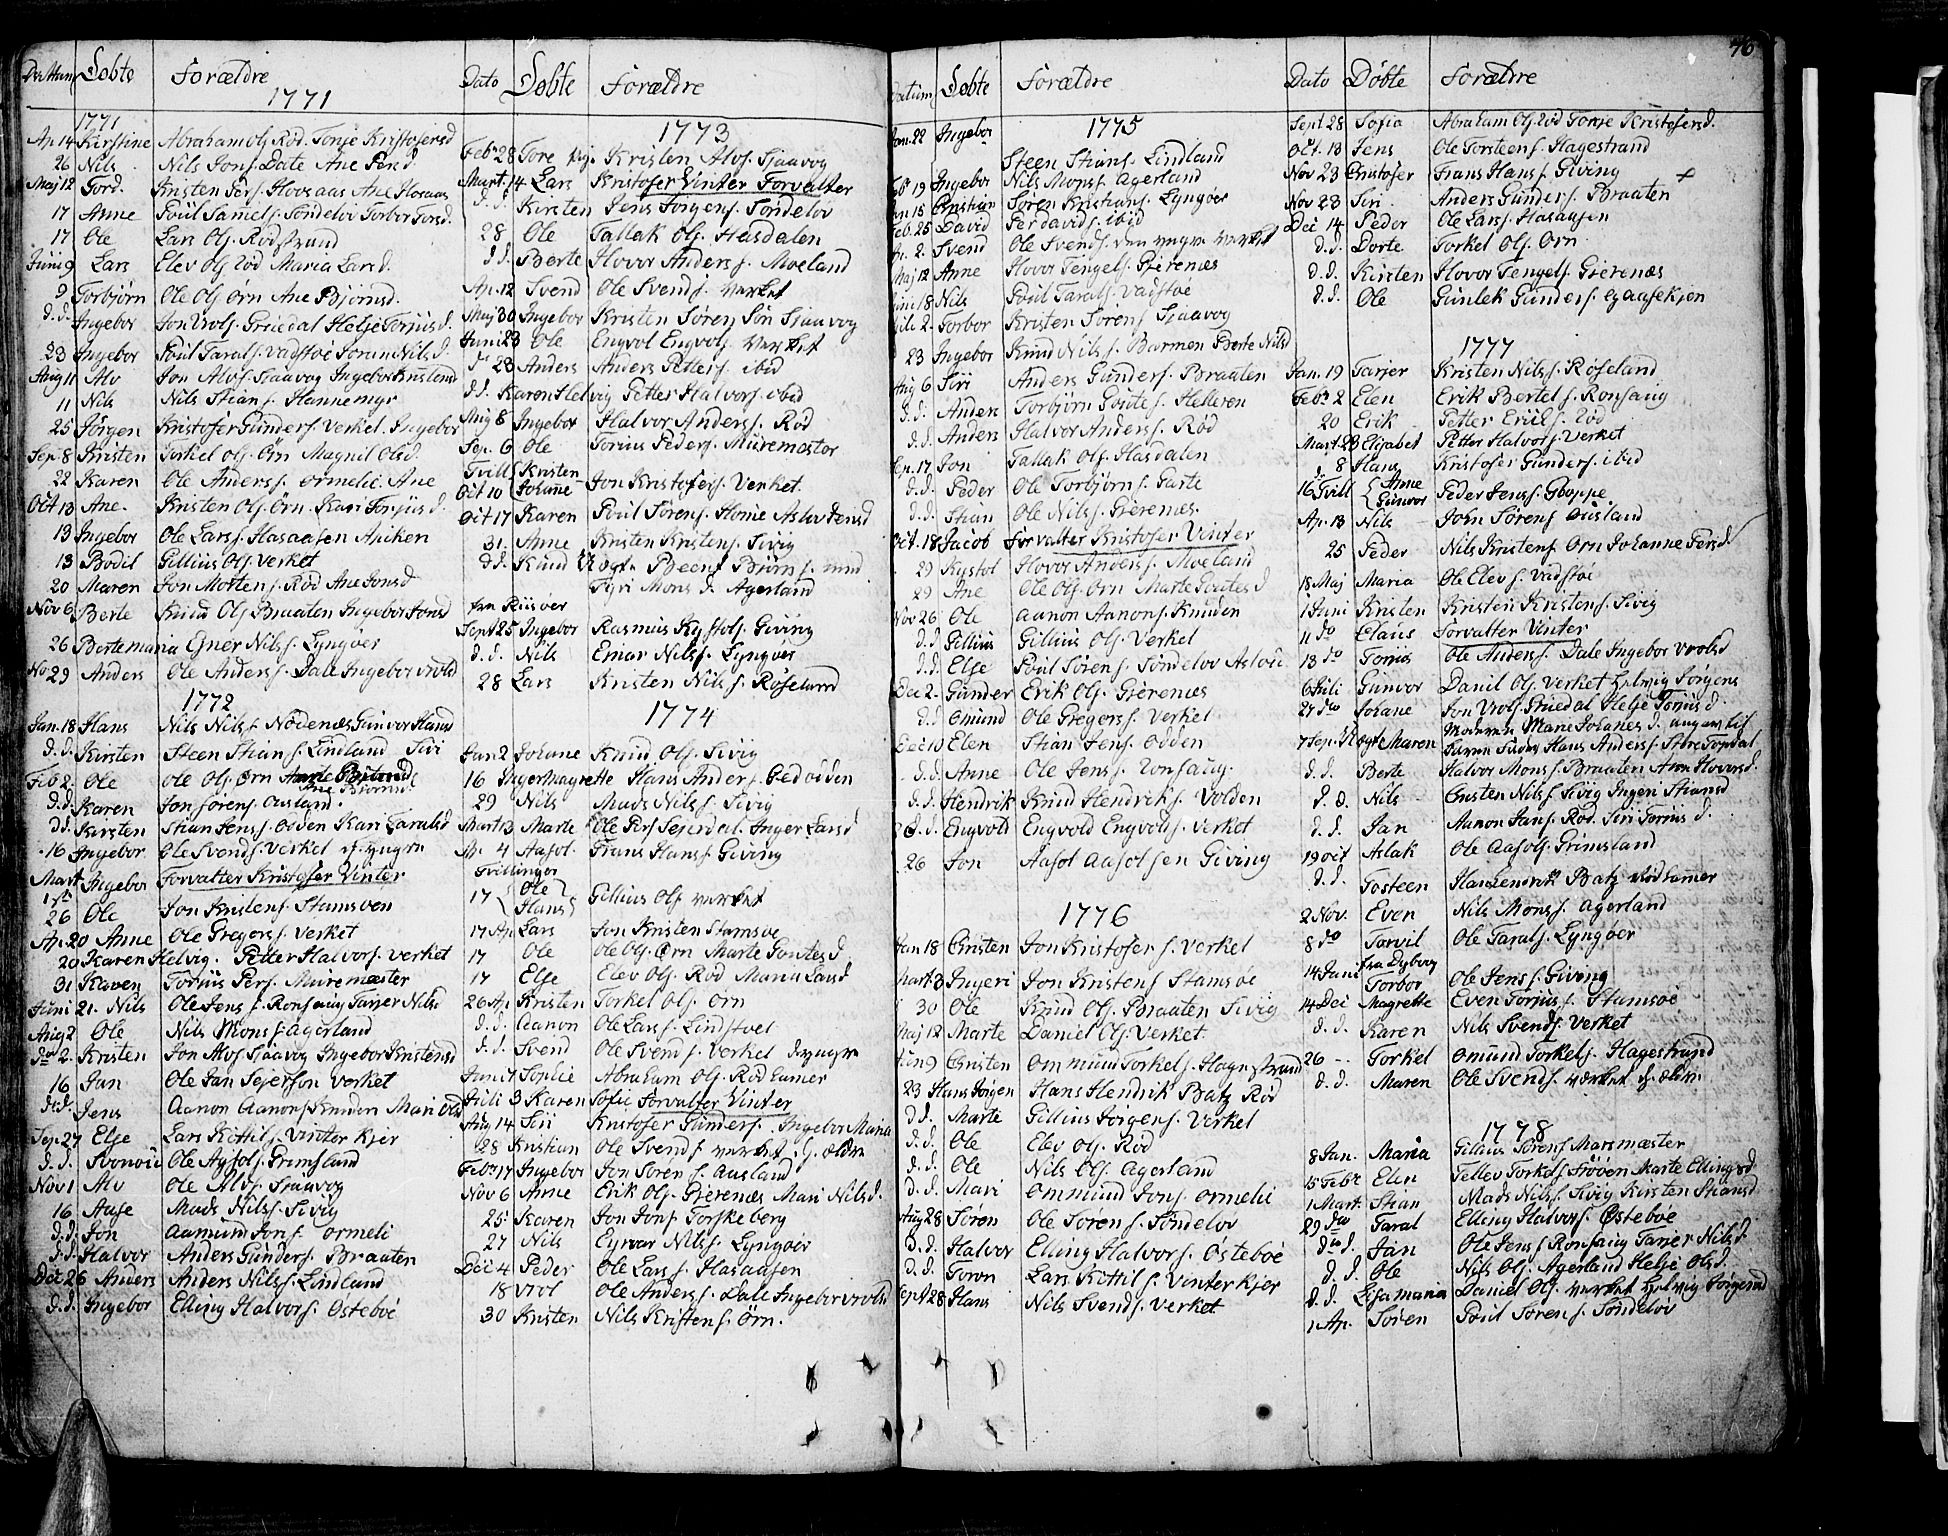 76
Dattum Døbte Forældre
1771
1771
Ap 14 Kirstine Abraham Ols Rød Tonje Kristofersd
26 Nils Nils Jons. Dale Ane Pen d
Maj 12 Tord. Kristen Pers. Hovsaas Ane Hosaas
17 Anne Poül Samels. Søndeløv Torbor Torsd.
17 Ole Lars Ols. Rødstrand
Juni 9 Lars Elev Ols Rød Maria Larsd.
9 Torbjørn Ole Ols Ørn Ane Bjørnsd.
d.d. Ingebor Jon Vrols. Grüedal Helje Torjüsd.
23 Ingebor Poül Tarals. Vadstøe Jorun Nilsd.
Aug 11 Alv Jon Alvs. Sjaavog Ingebor Kristensd
11 Nils Nils Stians. Hannemyr
25 Jörgen Kristofer Günders. Verket. Ingebor
Sep. 8 Kristen Torkel Ols. Ørn Magnil Olsd.
22 Karen Ole Anderss. Ormelie. Ane
Oct 13 Ane. Kristen Ols. Ørn. Kari Torjüsd.
13 Ingebor Ole Larss. Hasaasen Aniken
13 Bodil Gillius Ols. Verket
20 Maren Jon Mortens. Rød Ane Jonsd
Nov 6 Berte Knüd Ols Braaten Ingebor Jonsd
26 Bertemaria Ejner Nilss. Lyngøer
No 29 Anders Ole Anderss. Dale Ingebor Vrolsd
1772
Jan. 18 Hans Nils Nilss Nødenæs Gunvor Hansd
d.d. Kirsten Steen Stians. Lindland Siri
Feb 2. Ole Ole Ols. Ørn Ane Bjørnsd
d.d. Karen Jon Sørens. Ousland.
d.d. Kirsten Stian Jenss. Odden Kari Taralsd
16 Ingebor Ole Svends. Verket d. yngre
Mart 1ste Ingebor Forvalter Kristofer Vinter
26 Ole Jon Kristens. Stamsøen
Ap. 20 Anne Ole Gregers. Verket
20 Karen Helvig. Petter Halvors. Verket
31 Karen Torjüs Pers. Müremæster
Juni 21. Nils Ole Jens s. Ronsaug Tarjer Nilsd
Aug 2 Ole Nils Monss Agerland
do 2. Kristen Jon Alvs Sjaavog Ingebor Kristensd
16 Jan Ole Jan Sejerson Verket
d.d. Jens Aanon Aanons Knüden Mari Olsd
Sep. 27 Else Lars Kittils. Vinterkjer
d.d. Svenoü Ole Aasols. Grimsland
Nov 1 Alv Ole Alvs. Sjaavog
16 Aase Mads Nilss. Sivig
d.d. Jon Aamünd Jons. Ormeli
d.d. Halvor Anders Günders. Braaten
Dec 26 Anders Anders Nilss. Lindland
d.d. Ingebor Elling Halvors. Østebøe
Dato Døbte Forældre
1773
Feb 28 Tore pige Kristen Alvs. Sjaavog
Mart. 14 Lars Kristofer Vinter Forvalter
d.d. Kirsten Jens Jörgens. Søndeløv
28 Ole Tallak Ols. Hasdalen
d.d. Berte Hovor Anderss. Moeland
Ap. 12 Svend Ole Svends. Verket
Maj 30 Ingebor Kristen Søren Søn Sjaavog
Juni 23 Ole Engvol Engvols. Verket
do 23 Anders Anders Petters. ibid
d.d. Karen Helvig Petter Halvors. ibid
Aug 8 Ingebor Halvor Anderss. Rød
Sep. 6 Ole Torius Peders. Müremester
Tvill Oct 10 { Kristen Johanne Jon Kristofers. Verket
Oct 17 Karen Poül Sörens. Home Aslov Jensd
31. Anne Kristen Kristens. Sivig
d.d. Knud Uægte Beent Biørn s. med
Tyri Mons d. Agerland
fra Riisøer
Sept 25 Ingebor Rasmüs Kystols. Giving
d.d. Nils Einar Nilss. Lyngøer
28 Lars Kristen Nils s. Røseland
1774
Jan 2 Johane Knüd Ols. Sivig
16 Ingermagrette Hans Anders. Godviden
29 Nils Mads Nils s. Sivig
Mart 13 Marte Ole Pers Sejersdal. Inger Larsd
Ap. 4 Aasol. Frans Hans s. Giving
Tvillinger
17 { Ole Hans } Gillius Ols Verket
17 Ap Lars Jon Kristen Stamsøe
17 Ole Ole Ols. Ørn Marte Goutesd
17 Else Elev Ols. Rød Maria Larsd
26 Ap Kristen Torkel Ols. Ørn
d.d. Aanon Ole Larss. Lindstøel
d.d. Svend Ole Svend s. Verket d. yngre
Juni 7 Sophie Abraham Ols. Rødhamer
Juli 3 Karen Sofie Forvalter Vinter
Aug 14 Siri Kristofer Günders. Ingebor Maria
28 Kristian Ole Svends Verket. d. ældre
Feb. 17 Ingebor Jon Søren s. Ausland
Nov 6 Anne Erik Ols. Gjerenæs Mari Nilsd.
25 Karen Jon Jons Torskeberg
27 Nils Eyvar Nilss. Lyngøer
Dec 4 Peder Ole Larss. Hasaasen
18 Vrol Ole Anderss. Dale Ingebor Vrolsd
30 Kristen Nils Kristens. Ørn.
Datum Døbte Forældre
1775
Jan. 22 Ingebor Steen Stians. Lindland
Feb 19 Ingebor Nils Monss. Agerland
15 Christian Søren Kristians. Lyngøer
Feb. 25 David Per davids. ibid
Ap. 2. Svend Ole Svends. den yngre Verket
Maj 12 Anne Hovor Tengels. Gjerenæs
Juni 18 Nils Poül Tarals. Vadstøe
Juli 2. Torbor Kristen Sørens Sjaavog
23 Ingebor Knüd Nils s. Barmen Berte Nilsd
Aug 6 Siri Anders Günders. Braaten
d.d. Anders Torbjörn Goutes. Helleren
d.d. Anders Halvor Anders s. Rød
Sep. 17 Jon Tallak Ols. Hasdalen
d.d. Peder Ole Torbjörns. Garte
d.d. Stian Ole Nils s. Gierenæs
Oct. 18 Jacob Forvalter Kristofer Vinter
29 Kystol Hovor Anderss. Moeland
29 Ane Ole Ols. Ørn Marte Goutesd
Nov 26 Ole Aanon Aanons. Knüden
d.d. Gillius Gillius Ols. Verket
d.d. Else Poül Søren s. Søndelov Aslovie
Dec 2. Günder Erik Ols. Gierenæs
d.d. Omund Ole Gregers s. Verket
Dec 10 Elen Stian Jens s. Odden
d.d. Anne Ole Jens s. Ronsaug.
d.d. Hendrik Knüd Hendriks. Volden
d.d. Engvold Engvold Engvolds. Verket
26 Jon Aasol Aasolsen Giving
1776
Jan 18 Christen Jon Kristofer s. Verket
Mart 3 Ingeri Jon Kristens Stamsøe
30 Ole Knüd Ols. Braaten Sivig
Maj 12 Marte Daniel Ols. Verket
Jun 9 Christen Ommünd Torkels. Hagestrand
23 Hans Jorgen Hans Hendrik Batz Rød
d.d. Marte Gillius Jörgens. Verket
d.d. Ole Elev Ols. Rød
d.d. Ole Nils Ols. Agerland
d.d. Mari Ommünd Jons. Ormelie
Aug 28 Søren Ole Søren s. Søndelov
d.d. Halvor Elling Halvors. Østebøe
d.d. Toron Lars Kittil s. Vinterkjer
Sept 28 Hans Nils Svends. Verket
Dato Døbte Forældre
Sept 28 Sofia Abraham Ols Rød Tonje Kristofersd.
Oct. 13 Jens Ole Torsteens. Hagestrand
Nov 23 Cristofer Frans Hans s. Giving
Nov 23 Siri Anders Günders. Braaten
Dec 14 Peder Ole Larss. Hasaasen
d.d. Dorte Torkel Ols. Ørn
d.d. Kirsten Hovor Tengels. Gierenæs
d.d. Ole Günlek Günders s. Egaasekjen
1777
Jan. 19 Tarjer Kristen Nilss. Røseland
Feb. 2 Elen Erik Bertels. Ronsaug
20 Erik Petter Eriks. Rød
Mart 23 Elisabet Petter Halvors. Verket
8 Hans Kristofer Günders. ibid
16 Tvill { Anne Gunvor Peder Jenss. Gloppe
Ap. 13 Nils John Sørens Ousland
25 Peder Nils Kristens Ørn Johanne Persd.
18 Maj Maria Ole Elev s. Vadstøe
1 Juni Kristen Kristen Kristens. Sivig
11 do Claüs Forvalter Vinter
13 do Torjüs Ole Anderss. Dale Ingebor Vrolsd
6 Juli Gunvor Daniel Ols. Verket Helvig Jørgens
27 do Johane Jon Vrols. Grüedal Helje Torjüsd.
7 Sep. Uægte Maren Moderen Marie Johanes d. angav til
Barne Fader Hans Anderss. Store Topdal
d.d. Berte Halvor Monss. Braaten Aron Hovorsd.
d.d. Nils Cristen Nilss Sivig Ingen Stiansd
d.d. Jan Aanon Jans. Rød. Siri Torjüsd.
19 oct Aslak Ole Aasols. Grimsland
d.d. Tosteen Hans Hendrik Batz Rødhamer
2 Nov. Even Nils Monss. Agerland
8 do Torvil Ole Tarals. Lyngøer
14 Juni fra Dybvog Torbor Ole Jens s. Giving
14 Dec Magrette Even Torjüs s. Stamsøe
d.d. Karen Nils Svends. Verket
26 -- Torkel Omünd Torkels. Hagestrand
d.d. Maren Ole Svends. Verket d. ældre
1778
8 Jan. Maria Gillius Sørens Marsmæster
15 Febr Elen Tellev Torkels Frøøen Marte Ellingsd
1 Mart. Stian Mads Nilss. Sivig Kirsten Stiansd
29 do Taral Elling Halvors. Østebøe
do d. Jan Ole Jens s Ronsaug Tarjer Nilsd.
d.d. Ole Nils Ols. Agerland Helje Olsd.
d.d. Lisamaria Daniel Ols. Verket Helvig Jörgensd
1 Ap. Søren Poül Søren s. Søndelov